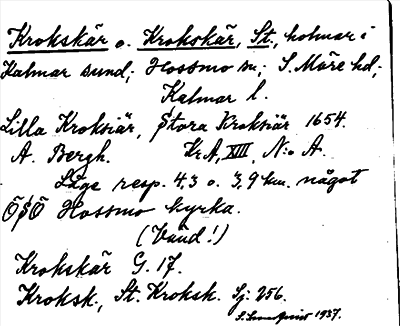 Krokskär o. Krokskär, St., holmar i
Kalmar sund; Hossmo sn; S. Möre hd;
Kalmar l.
Lilla Kroksiär, Stora Kroksiär 1654.
A. Bergh. Kr A, XIII, N:o A.
Läge resp. 4,3 o. 3,9 km. något
ÖSÖ Hossmo kyrka.
(Vänd!)
Krokskär G. 17.
Kroksk., St. Kroksk. Sj. 256.
1937.